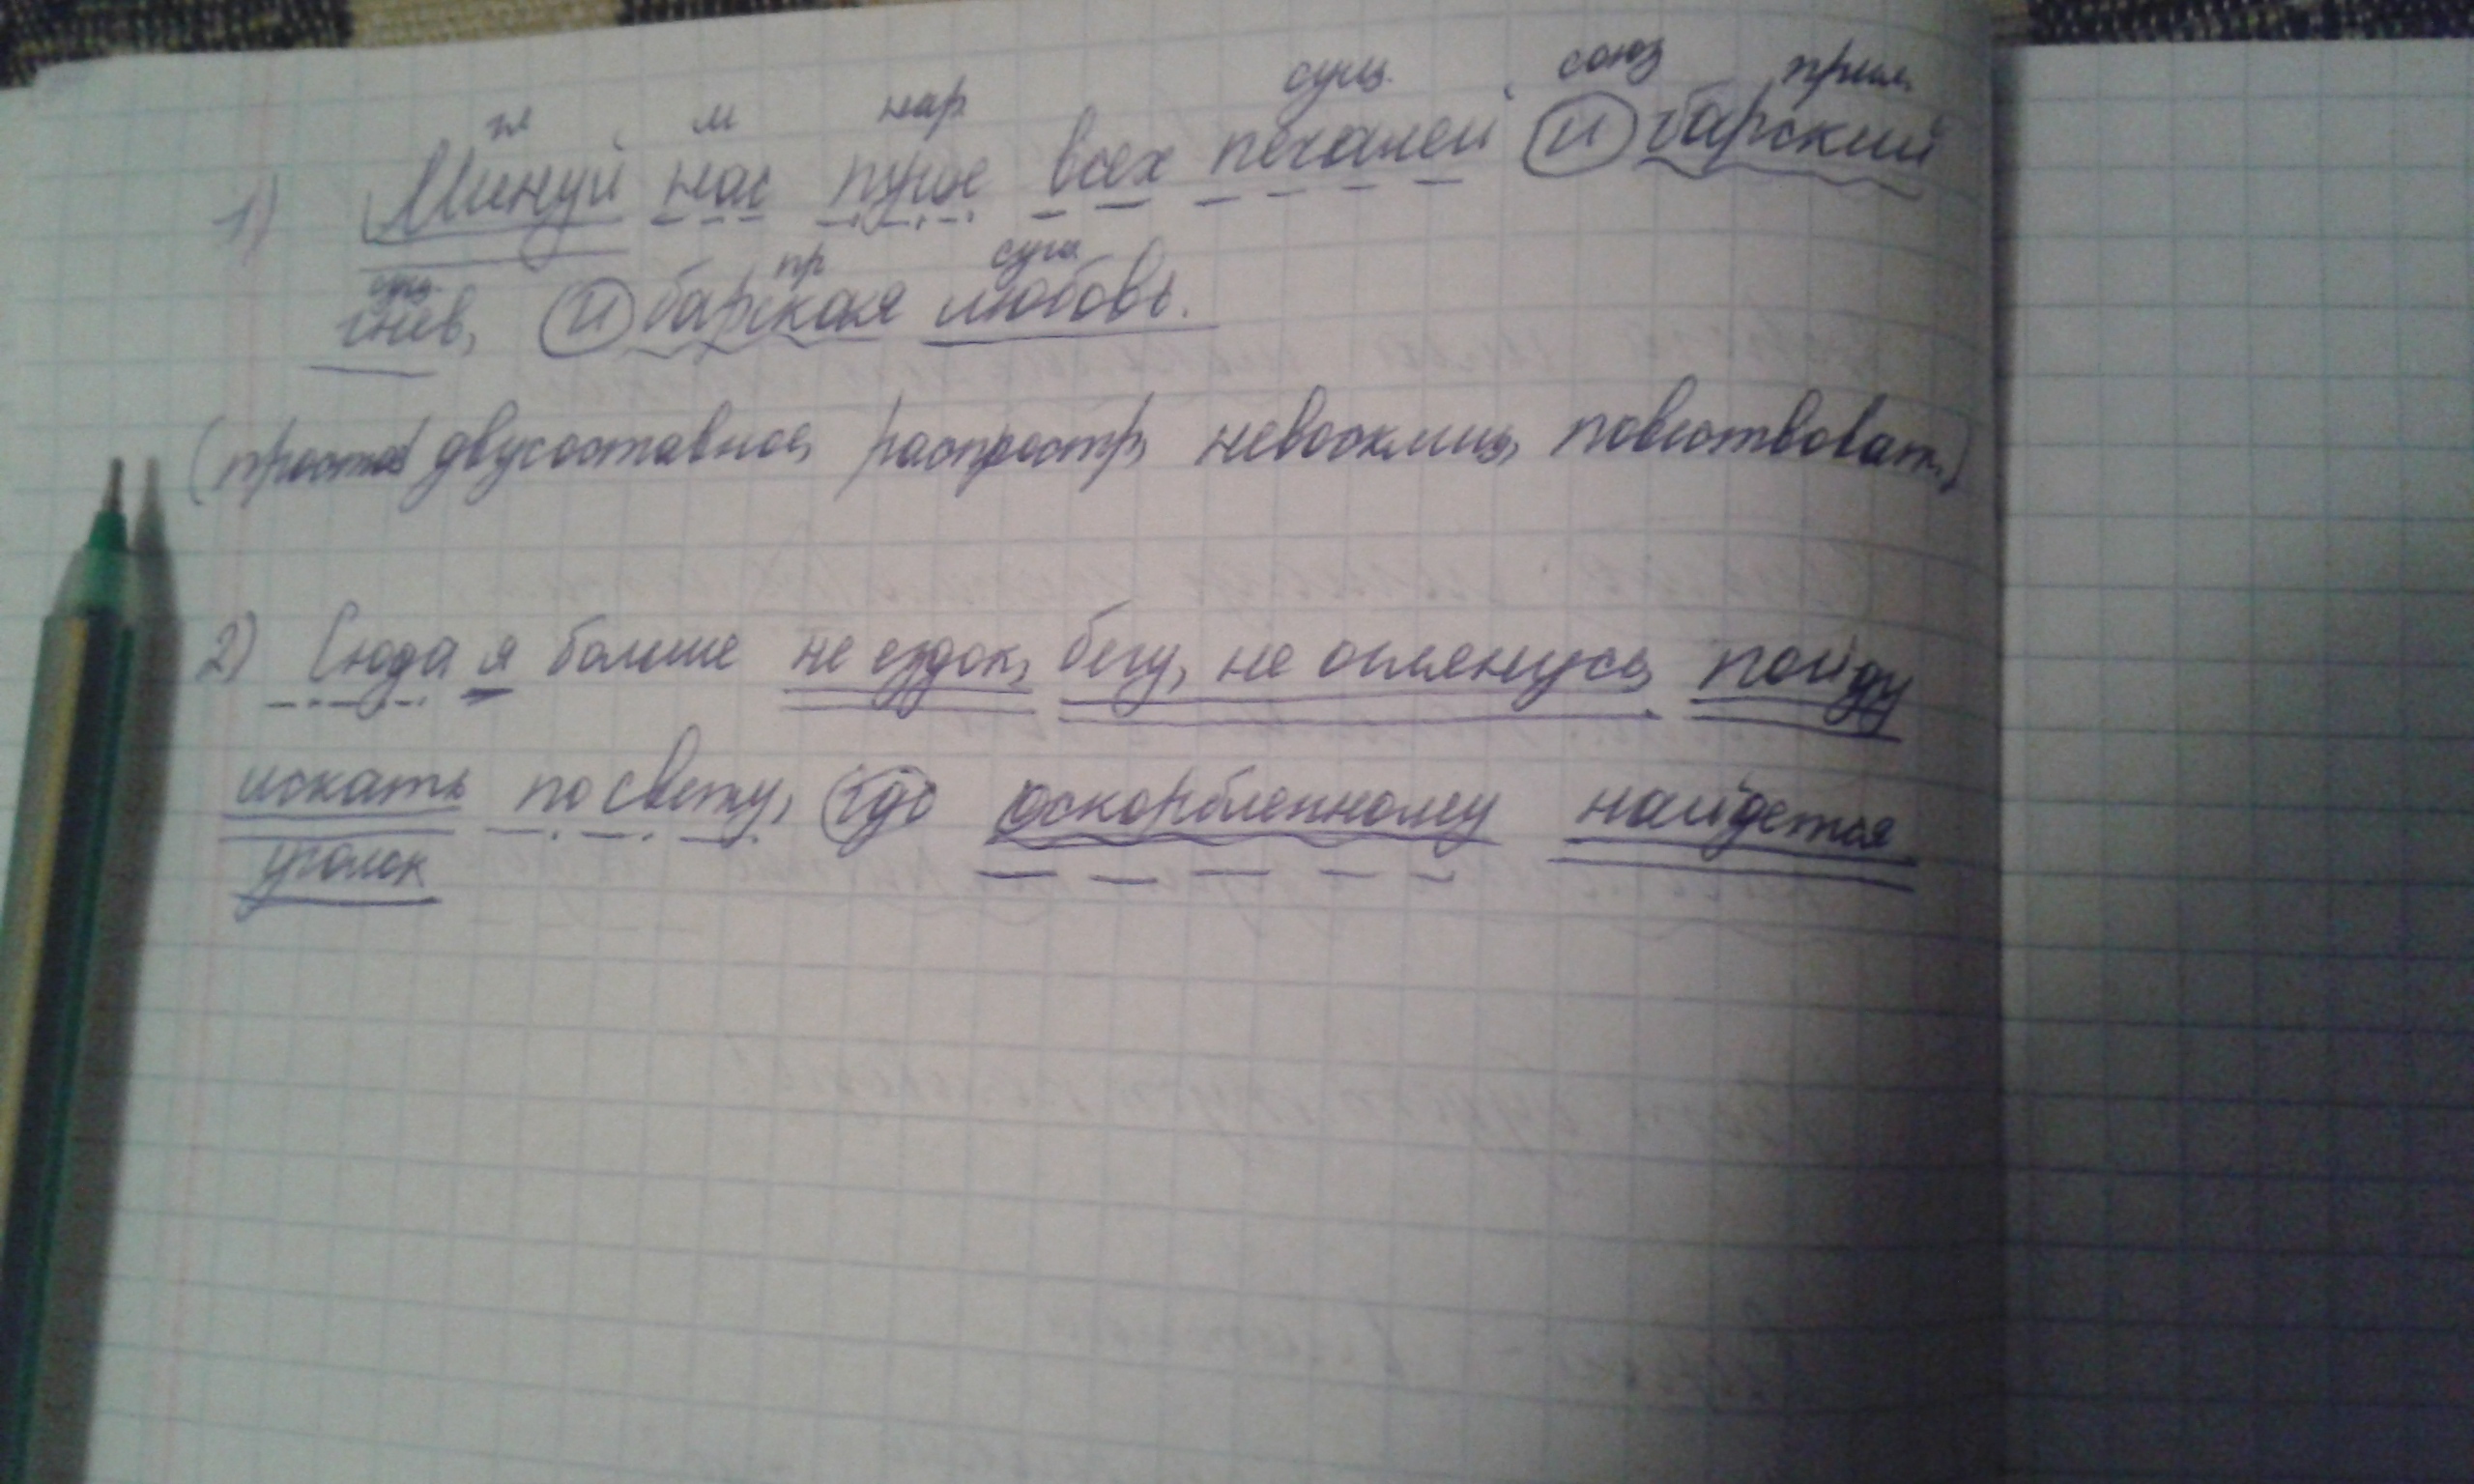 гл м нар сущ. союз прил.
1) Минуй нас пуще всех печалей и барский
сущ. пр сущ.
гнев, и барская любовь.
(простое двусоставное, распростр, невосклиц, повествоват.)
2) Сюда я больше не ездок, бегу, не оглянусь, пойду
искать по свету, где оскорбленному найдется
уголок